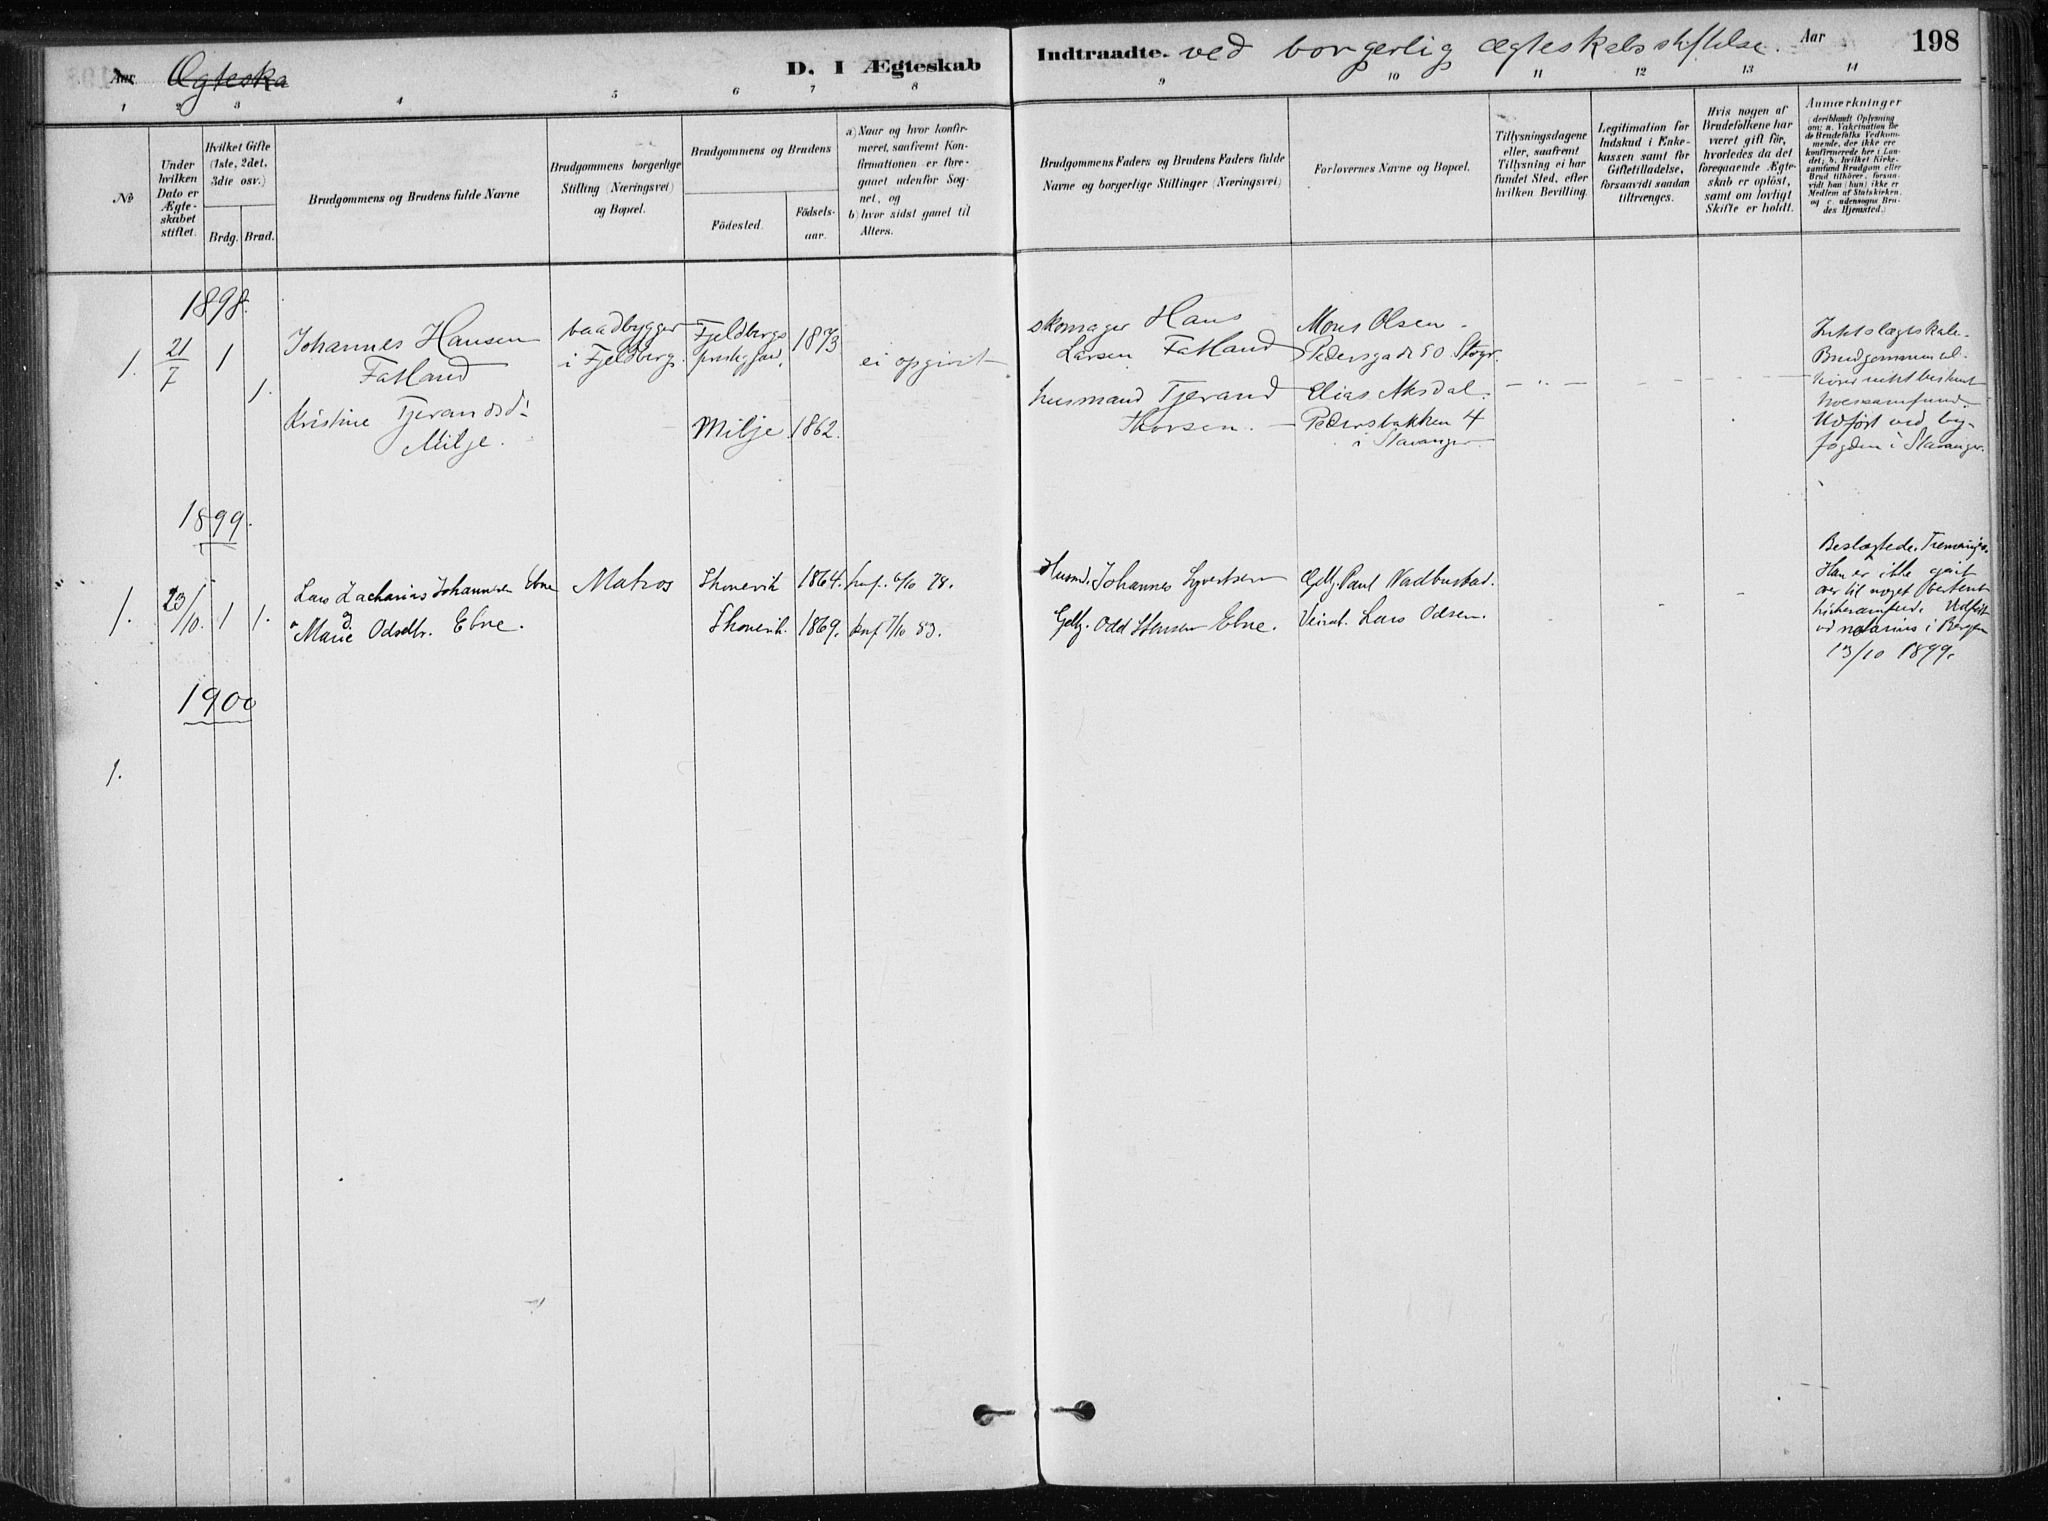 Aar Ægteska
D. I Ægteskab
Indtraadte. ved borgerlig ægteskabsstiftelse. Aar
198
1 2 3 4 5 6 7 8 9 10 11 12 13 14
No
Under
hvilken
Dato er
Ægte-
skabet
stiftet.
Hvilket Gifte
(1ste, 2det,
3die osv.)
Brdg. Brud.
Brudgommens og Brudens fulde Navne
Brudgommens borgerlige
Stilling (Næringsvei)
og Bopæl.
Brudgommens og Brudens
Födested.
Födsels-
aar.
a) Naar og hvor konfir-
meret, saafremt Kon-
firmationen er fore-
gaaet udenfor Sog-
net, og
b) hvor sidst gaaet til
Alters.
Brudgommens Faders og Brudens Faders fulde
Navne og borgerlige Stillinger (Næringsvei)
Forlovernes Navne og Bopæl.
Tillysningsdagene
eller, saafremt
Tillysning ei har
fundet Sted, efter
hvilken Bevilling.
Legitimation for
Indskud i Enke-
kassen samt for
Giftetilladelse,
forsaavidt saadan
tiltrænges.
Hvis nogen af
Brudefolkene har
været gift för,
hvorledes da det
foregaaende Ægte-
skab er oplöst,
samt om lovligt
Skifte er holdt.
Anmærkninger
(deriblandt Oplysning
om: a. Vakcination for
de Brudefolks Vedkom-
mende, der ikke ere
konfirmerede her i Lan-
det; b. hvilket Kirke-
samfund Brudgom eller
Brud tilhörer, forsaa-
vidt han (hun) ikke er
Medlem af Statskirken,
og c. udensogns Bru-
des Hjemsted.)
1898.
1. 21/7 1 1.
Johannes Hansen
Fatland
Kristine Tjerandsd:
Milje.
baadbygger
i Fjeldberg.
Fjeldbergs
prestegjæld,
1873
Milje. 1862.
ei opgivit
skomager Hans
Larsen Fatland
husmand Tjerand
Thorsen.
Mons Olsen.
Pedersgade 50 Stvgr.
Elias Aksdal.
Pedersbakken 4
i Stavanger
Brudgommen til-
hører
Udført ved by-
fogden i Stavanger.
1899.
1. 23/10. 1 1.
Lars Zacharias Johannesen Ebne
Marie Odsdtr. Ebne.
Matros
Skonevik 1864. knf. 6/10 78.
Skonevik. 1869. knf 7/10 83.
Husmd. Johannes Syvertsen
Odd Ebne.
Paul
Lars Odsen.
Beslægtede.
Han er ikke gaaet
over til noget bestemt
Udført
ved notarius i Bergen
13/10 1899.
1900
1.